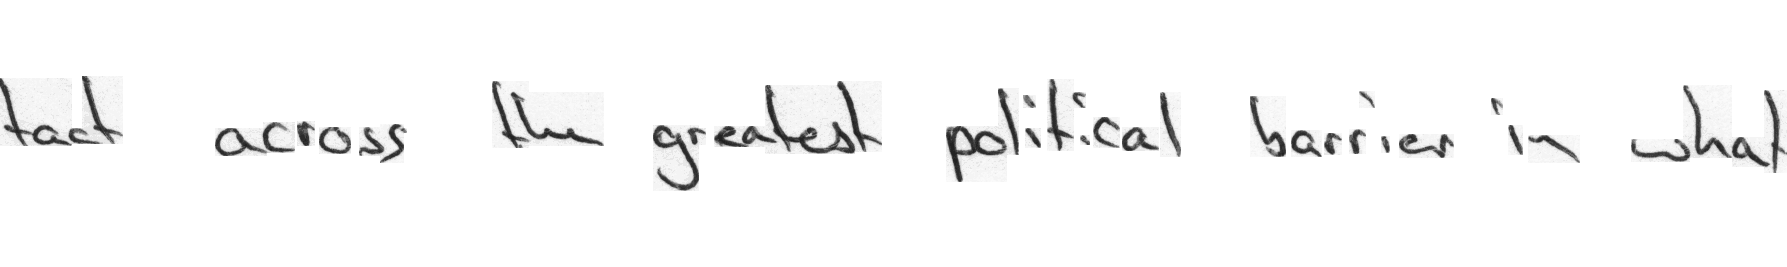 tact across the greatest political barrier in what